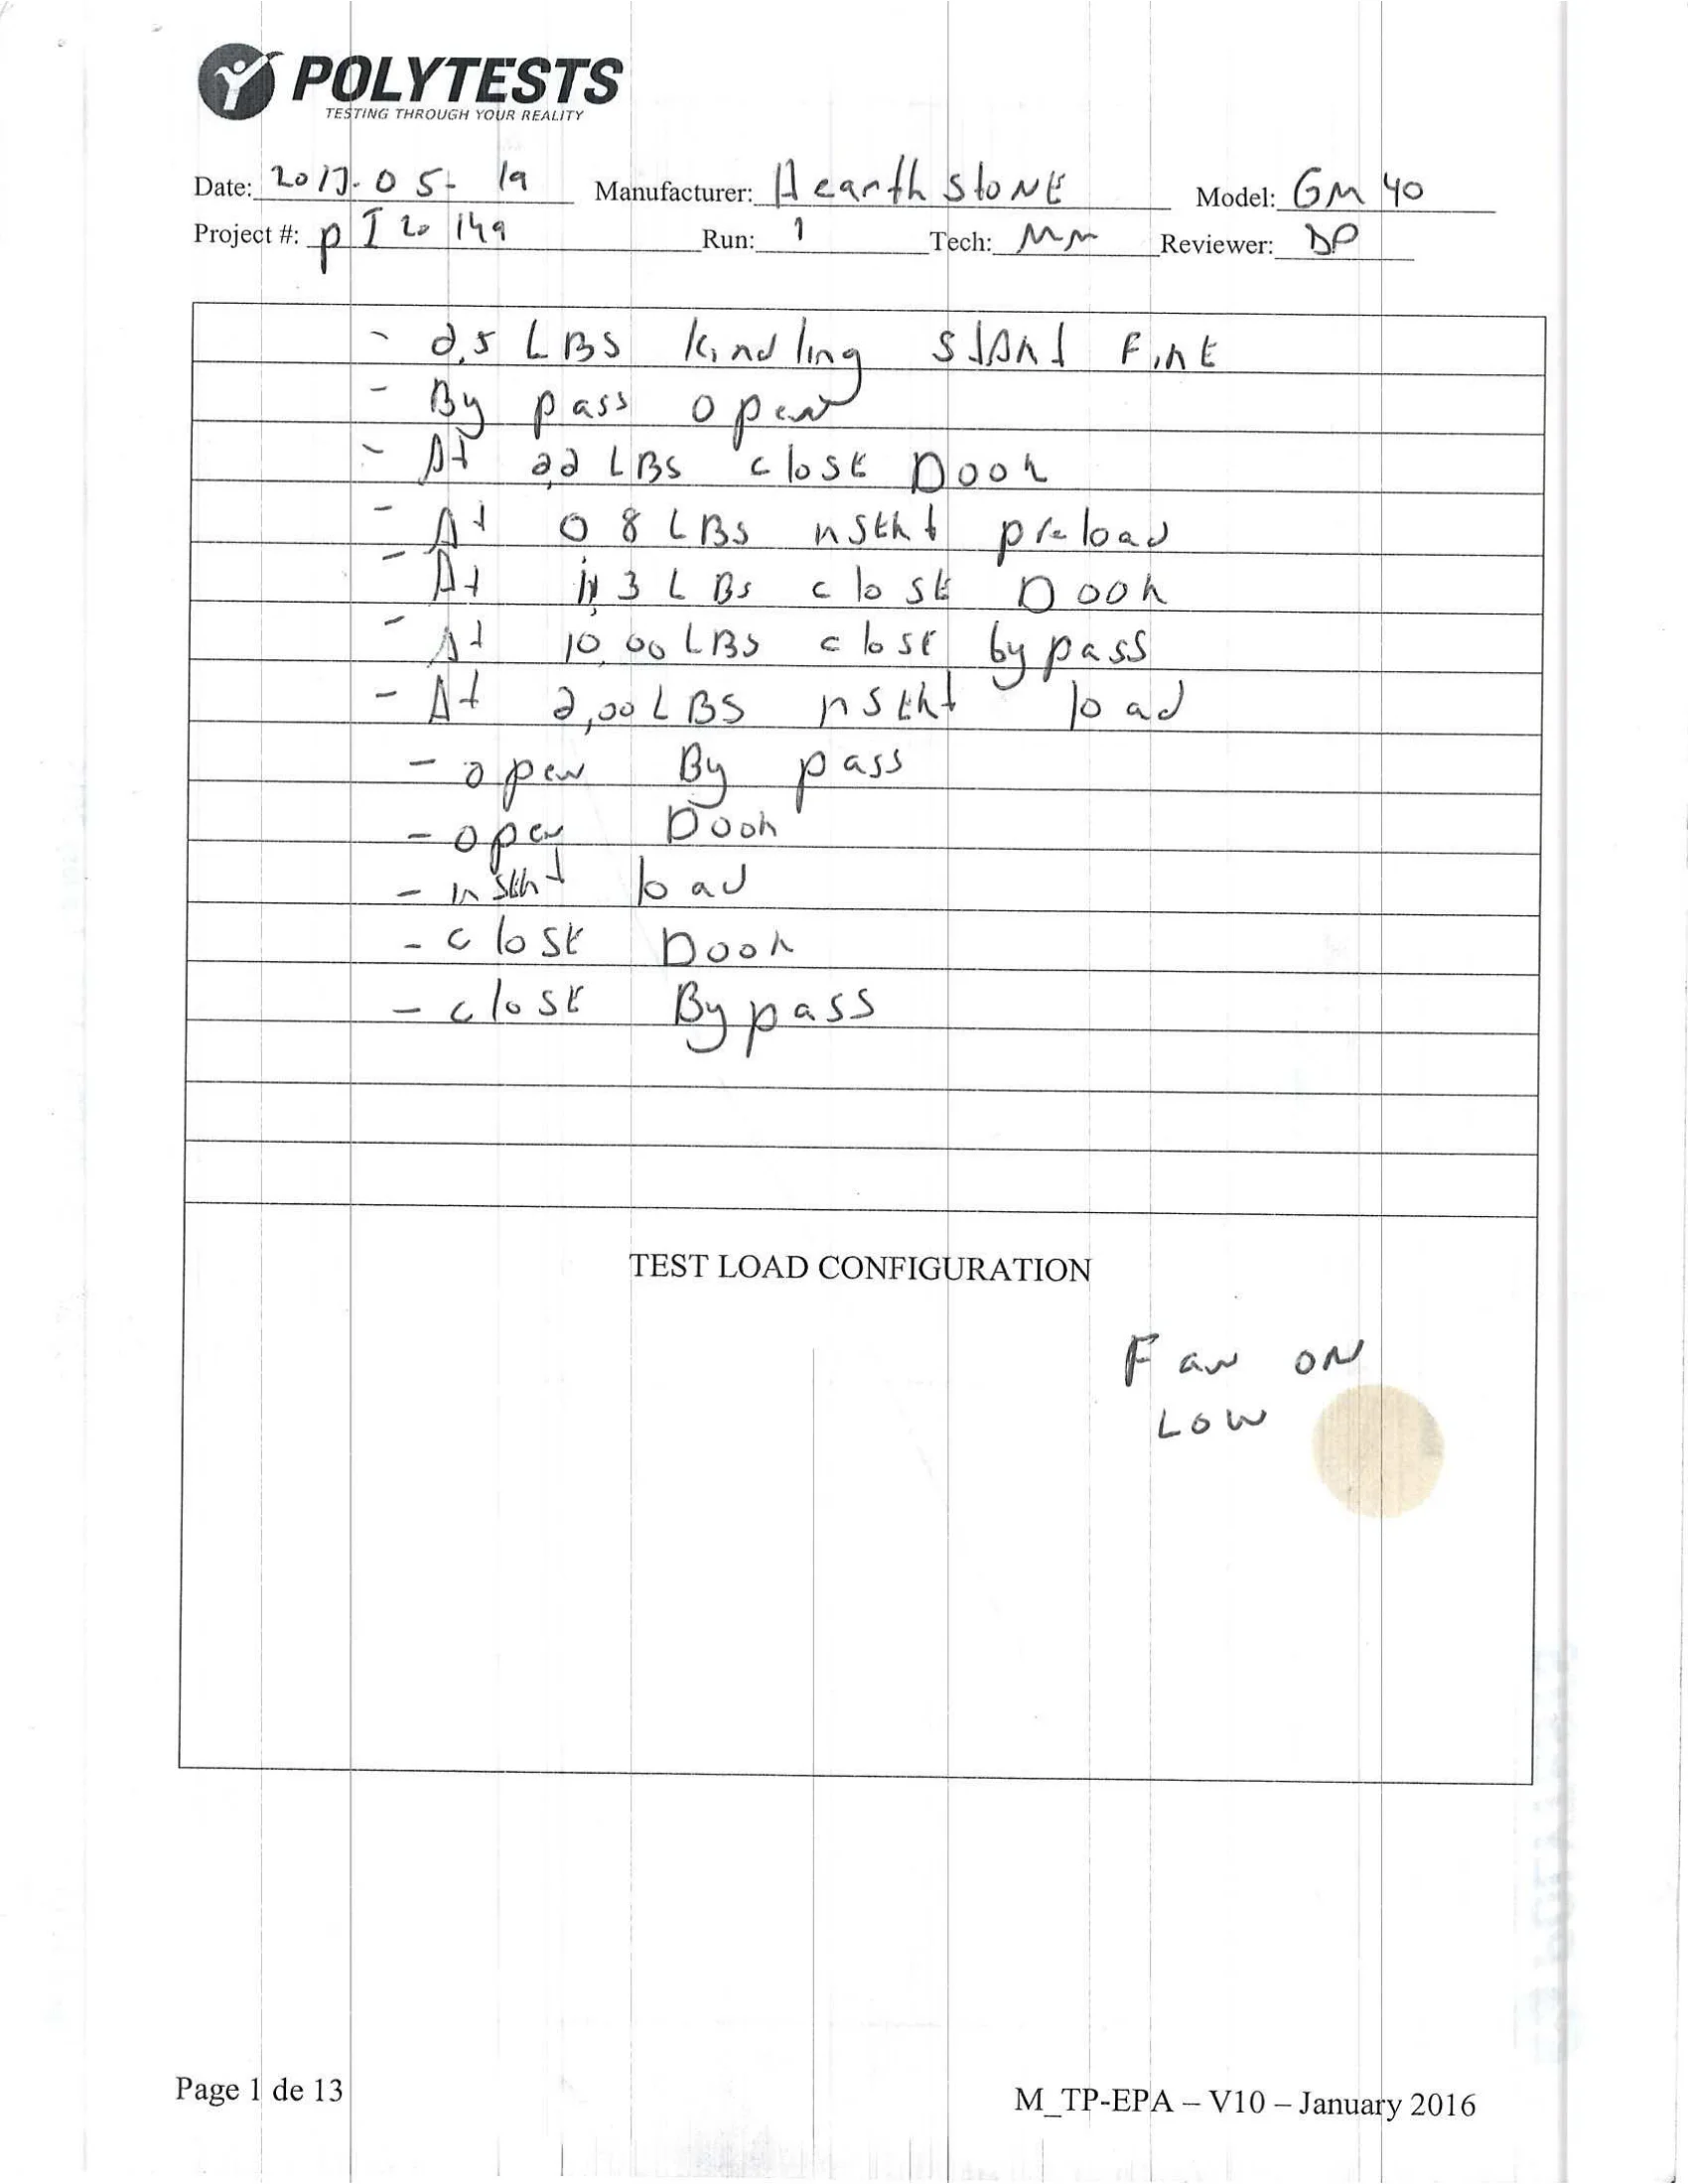 POLYTESTS
TESTING THROUGH YOUR REALITY
Date: 2017-05-19 Manufacturer: Hearthstone Model: GM 40
Project #: PI20149 Run: 1 Tech: MM Reviewer: DP
- 2.5 LBS kindling start Fire
- By pass open
- At 2,2 LBS close Door
- At 0 8 LBS insert preload
- At 3 LBS close Door
- At 10.00 LBS close bypass
- At 2,00 LBS insert load
- open By pass
- open Door
- insert load
- close Door
- close Bypass
TEST LOAD CONFIGURATION
Fan ON
LOW
Page 1 de 13
M_TP-EPA – V10 – January 2016